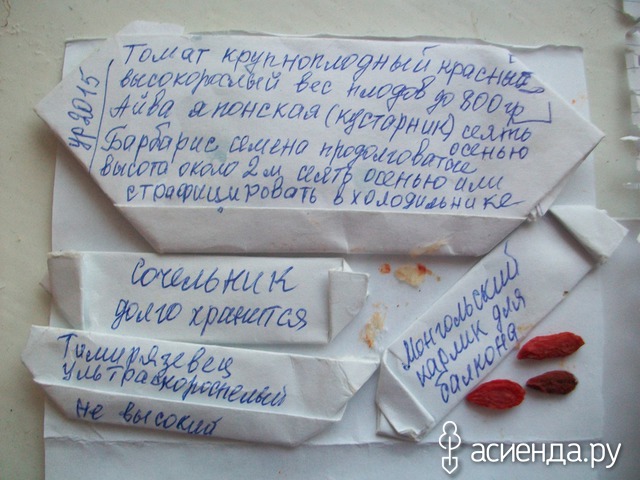 ур 2015
Томат крупноплодный красный
высокорослый вес плодов до 800 гр
Айва японская (кустарник) сеять
осенью
Барбарис семена продолговатые
высота около 2 м, сеять осенью или
страфицировать в холодильнике
Сочельник
долго хранится
Тимирязевец
ультраскороспелый
не высокий
Монгольский
карлик для
балкона
асиенда.ру